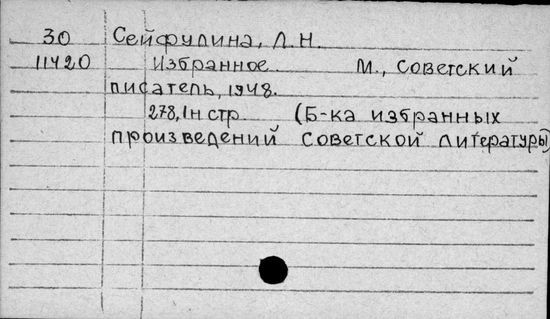 30 Сейфулина, Л.Н.
11420 Избранное М., Советский
писатель, 1948.
278, 1н стр (Б-ка избранных
произведений советской литературы)